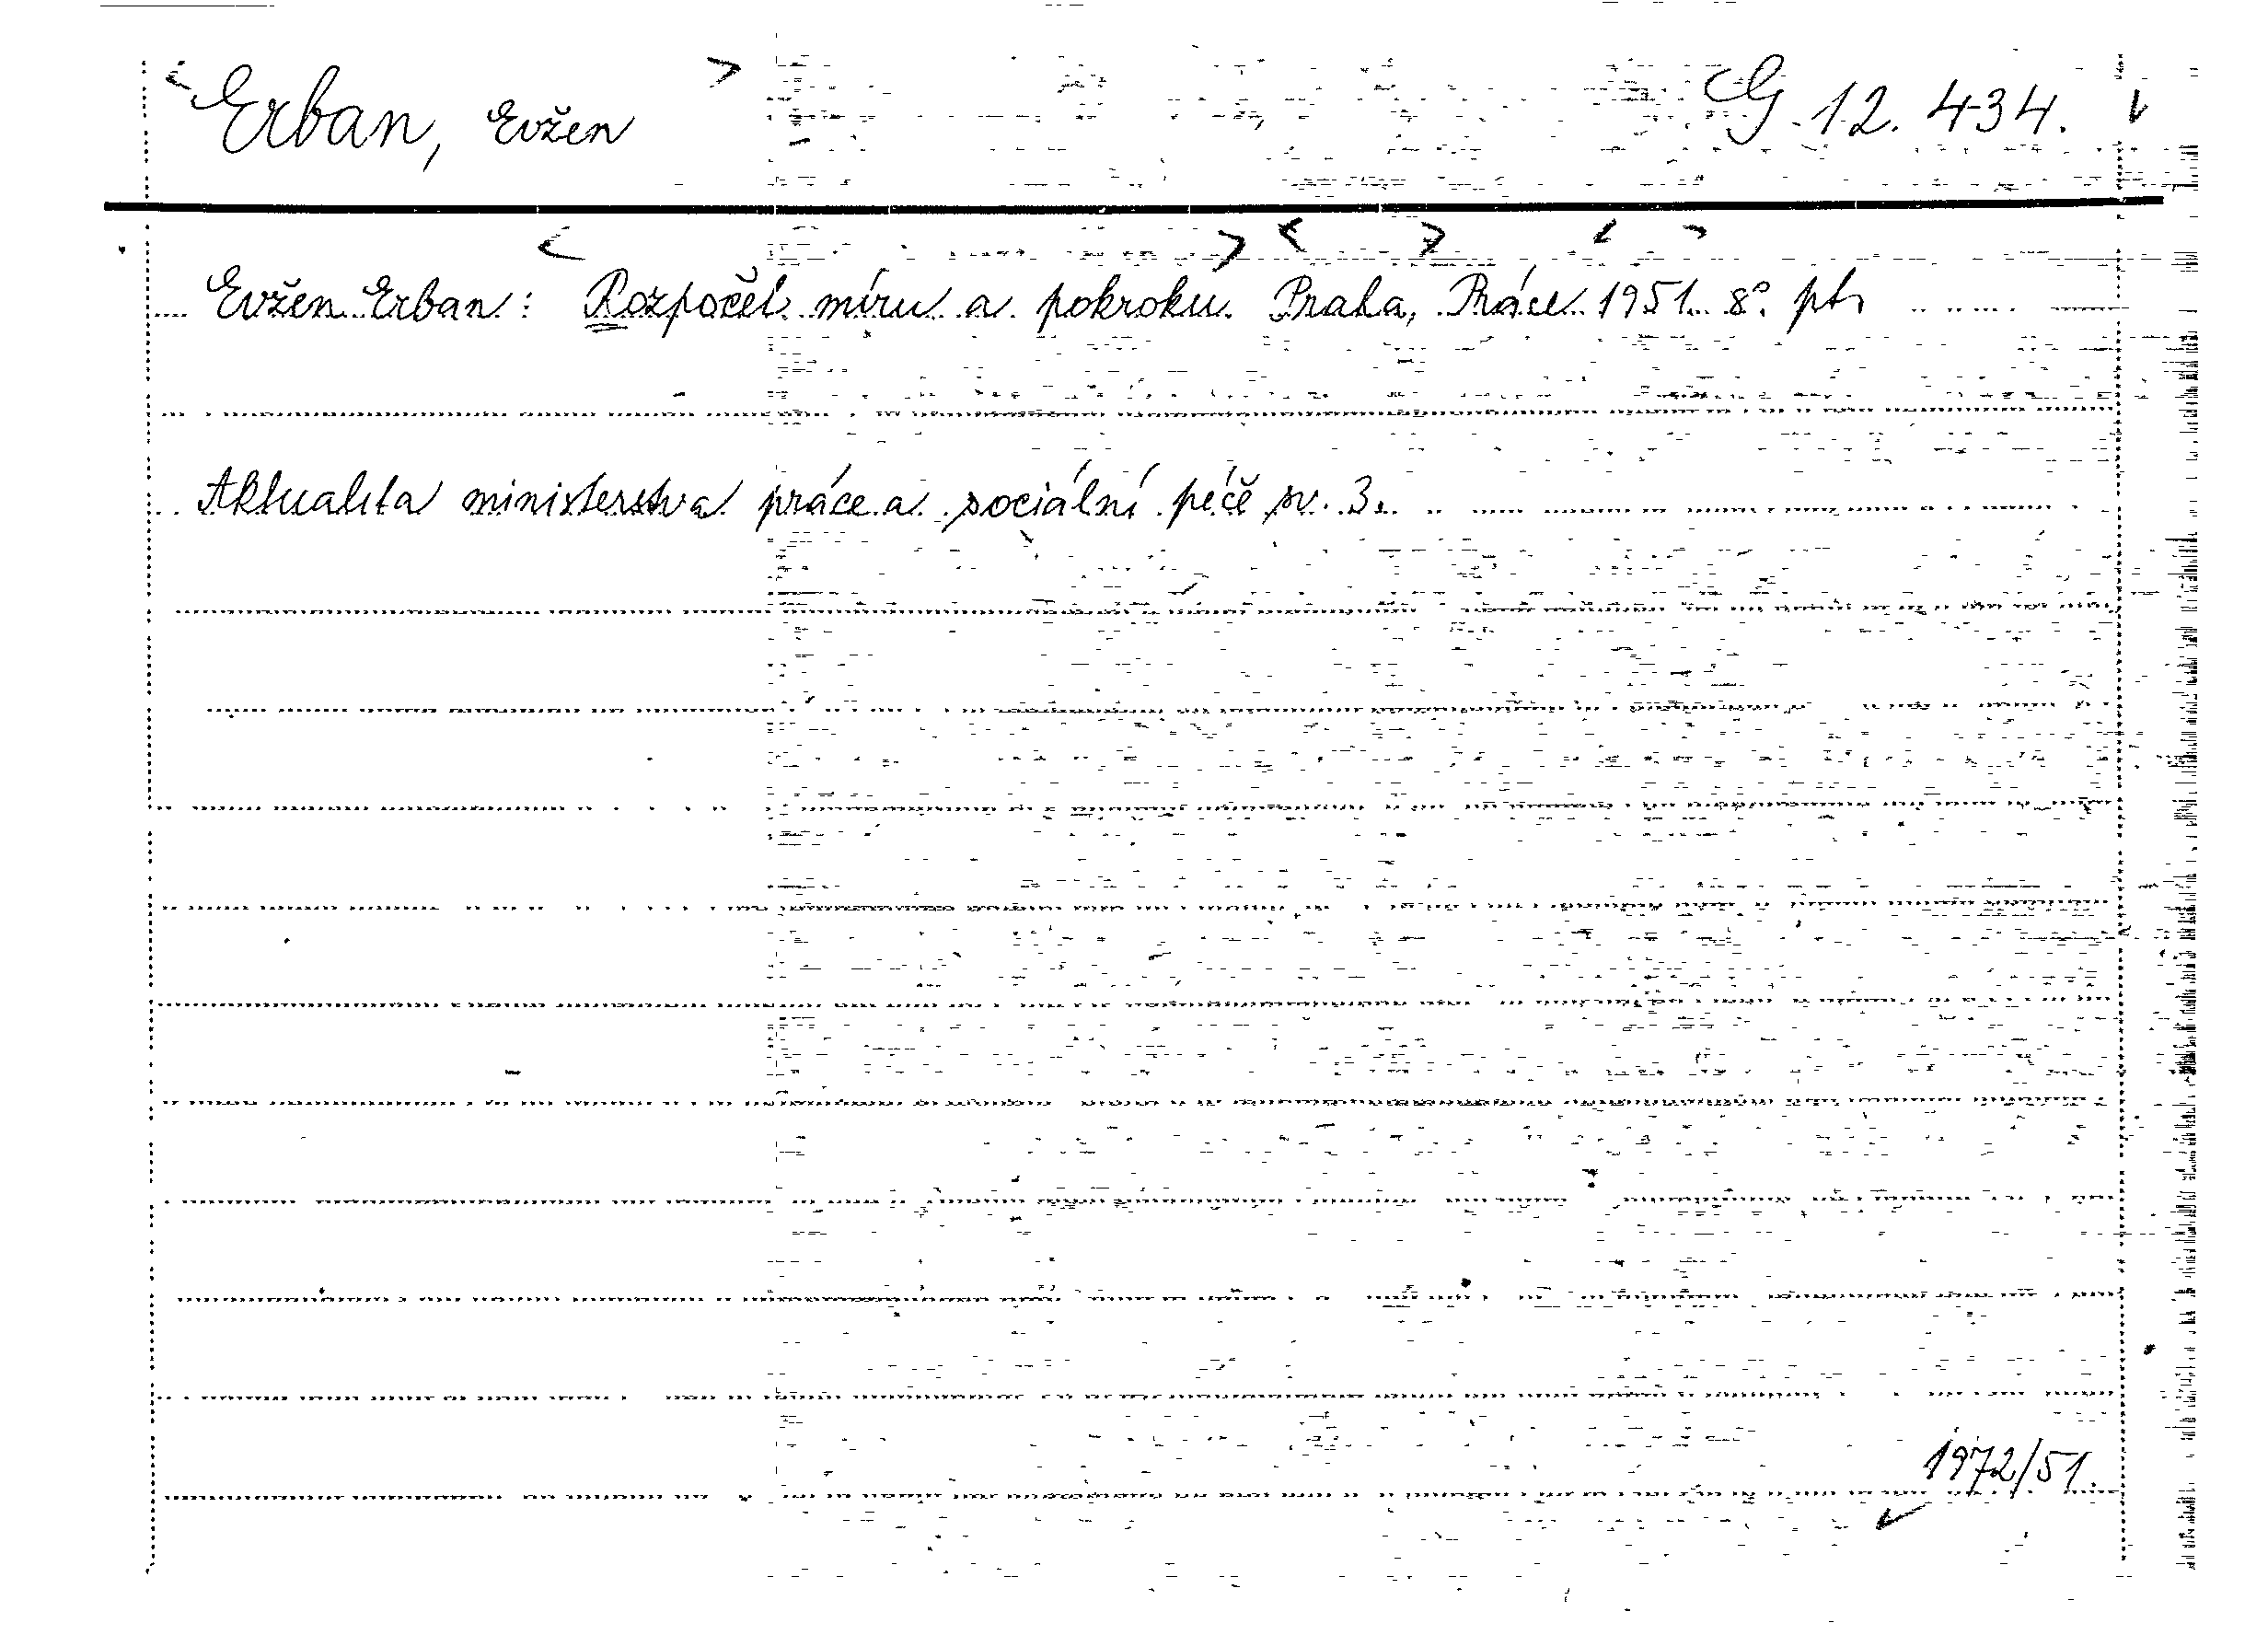 Erban, Evžen G 12.434.
Evžen Erban: Rozpočet míru a pokroku. Praha, Práce 1951. 8° pt,
Aktualita ministerstva práce a sociální péčě sv. 3.
1972/51.